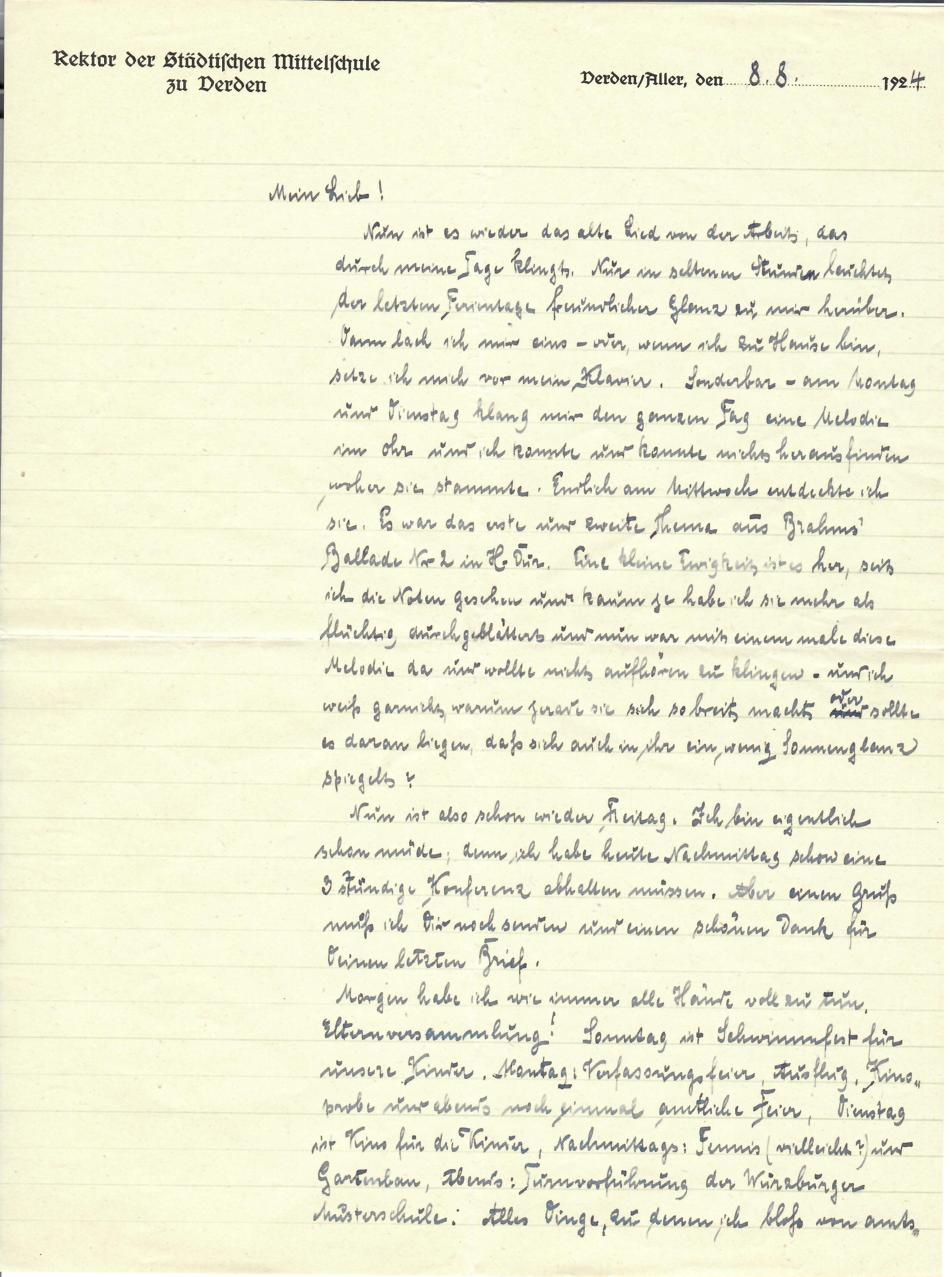 Rektor der Städtischen Mittelschule
zu Verden
Verden/Aller, den 8.8. 1924
Mein Lieb!
Nun ist es wieder das alte Lied von der Arbeit, das
durch meine Tage klingt. Nur in seltenen Stunden leuchtet
der letzten Ferientage freundlicher Glanz zu mir herüber.
Dann lach ich mir eins – oder, wenn ich zu Hause bin,
setze ich mich vor mein Klavier. Sonderbar – am Montag
und Dienstag klang mir den ganzen Tag eine Melodie
im Ohr und ich konnte und konnte nicht herausfinden
woher sie stammte. Endlich am Mittwoch entdeckte ich
sie. Es war das erste und zweite Thema aus Brahms'
Ballade Nr 2 in H-Dur. Eine kleine Ewigkeit ist es her, seit
ich die Noten gesehen und kaum je habe ich sie mehr als
flüchtig durchgeblättert und nun war mit einem male diese
Melodie da und wollte nicht aufhören zu klingen – und ich
weiß garnicht, warum gerade sie sich so breit macht, oder sollte
es daran liegen, daß sich auch in ihr ein wenig Sonnenglanz
spiegelt?
Nun ist also schon wieder Freitag. Ich bin eigentlich
schon müde, denn ich habe heute Nachmittag schon eine
3 stündige Konferenz abhalten müssen. Aber einen Gruß
muß ich Dir noch senden und einen schönen Dank für
Deinen letzten Brief.
Morgen habe ich wie immer alle Hände voll zu tun.
Elternversammlung! Sonntag ist Schwimmfest für
unsere Kinder. Montag: Verfassungsfeier, Ausflug, Kino-
probe und abends noch einmal amtliche Feier, Dienstag
ist Kino für die Kinder, Nachmittags: Tennis (vielleicht?) und
Gartenbau, Abends: Turnvorführung der Würzburger
Musterschule. Alles Dinge, zu denen ich bloß von amts-